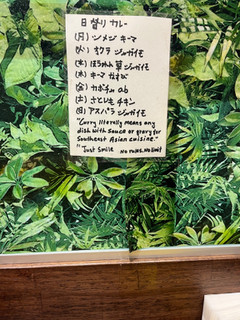 日替り カレー
(月) シメジ キーマ
(火) オクラ ジャガイモ
(水) ほうれん草 ジャガイモ
(木) キーマ なすび
(金) カボチャ
(土) さといも チキン
(日) アスパラ ジャガイモ
"Curry literally means any
dish with sauce or gravy for
Southeast Asian cuisine."
"Just Smile